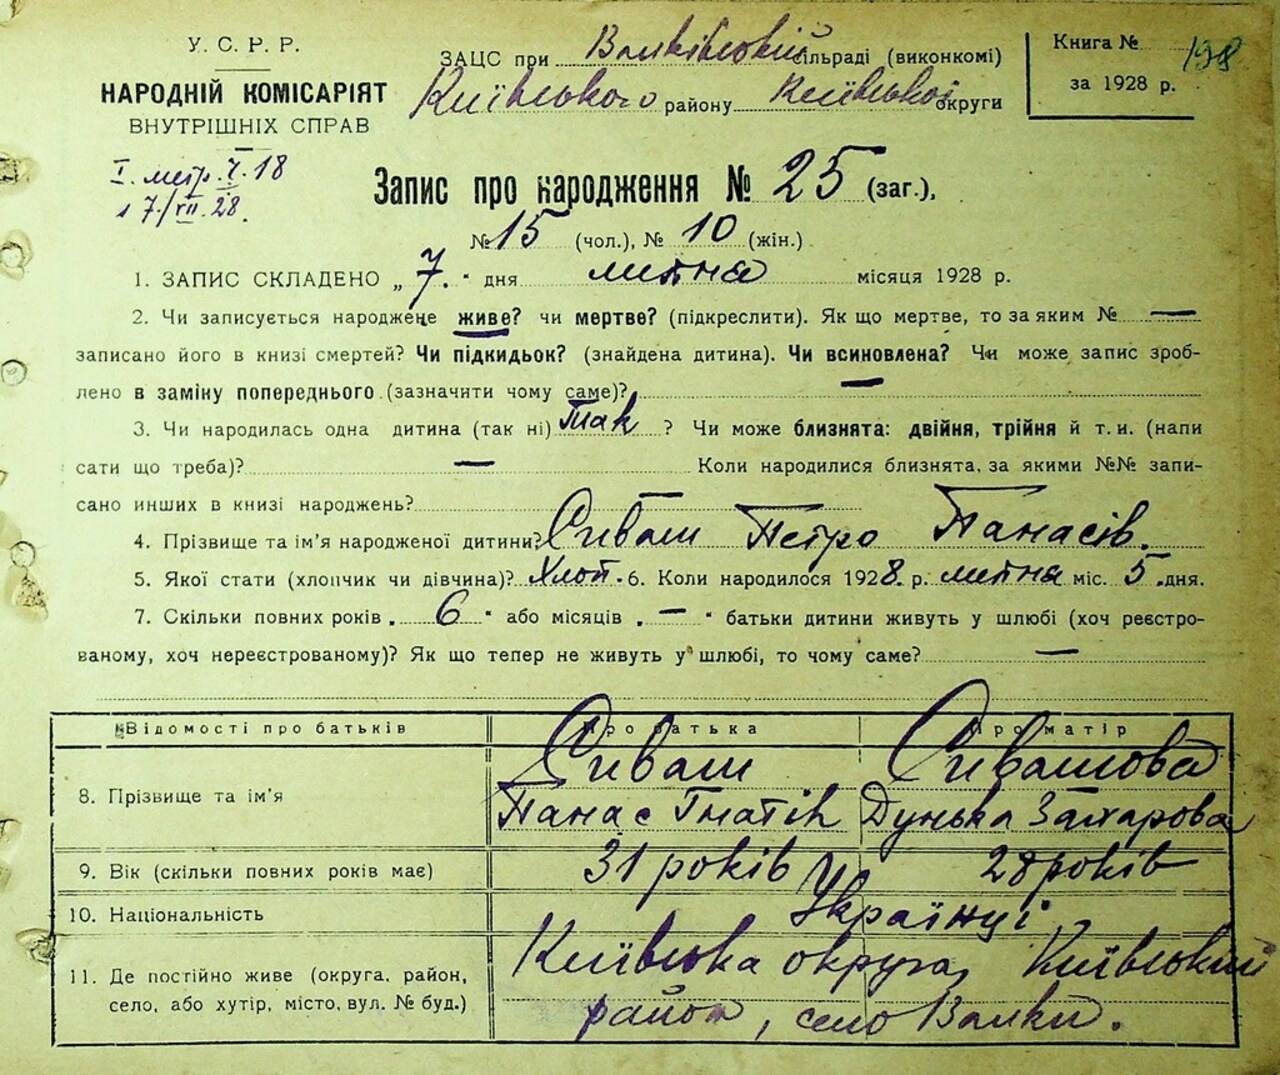 У. С. Р. Р.
НАРОДНІЙ КОМІСАРІЯТ
ВНУТРІШНІХ СПРАВ
I. метр. Ч. 18
з 7/VII.28.
ЗАЦС при Валківській сільраді (виконкомі)
Київського району Київської округи
Книга № 198
за 1928 р.
Запис про народження № 25 (заг.),
№ 15 (чол.), № 10 (жін.)
1. ЗАПИС СКЛАДЕНО „ 7. " дня липня місяця 1928 р.
2. Чи записується народжене живе? чи мертве? (підкреслити). Як що мертве, то за яким № —
записано його в книзі смертей? Чи підкидьок? (знайдена дитина). Чи всиновлена? Чи може запис зроб-
лено в заміну попереднього (зазначити чому саме)? —
3. Чи народилась одна дитина (так ні) Так ? Чи може близнята: двійня, трійня й т. и. (напи
сати що треба)? — Коли народилися близнята, за якими №№ запи-
сано инших в книзі народжень? —
4. Прізвище та ім'я народженої дитини? Сиваш Петро Панасів.
5. Якої стати (хлопчик чи дівчина)? Хлоп. 6. Коли народилося 1928. р. липня міс. 5. дня.
7. Скільки повних років „ 6 " або місяців „ — " батьки дитини живуть у шлюбі (хоч реєстро-
ваному, хоч нереєстрованому)? Як що тепер не живуть у шлюбі, то чому саме? —
Відомості про батьків Про батька Про матір
8. Прізвище та ім'я Сиваш Сивашова
Панас Гнатів Дунька Захарова
9. Вік (скільки повних років має) 31 років 28 років
10. Національність Українці
11. Де постійно живе (округа, район,
село, або хутір, місто, вул. № буд.)
Київська округа, Київський
район, село Валки.